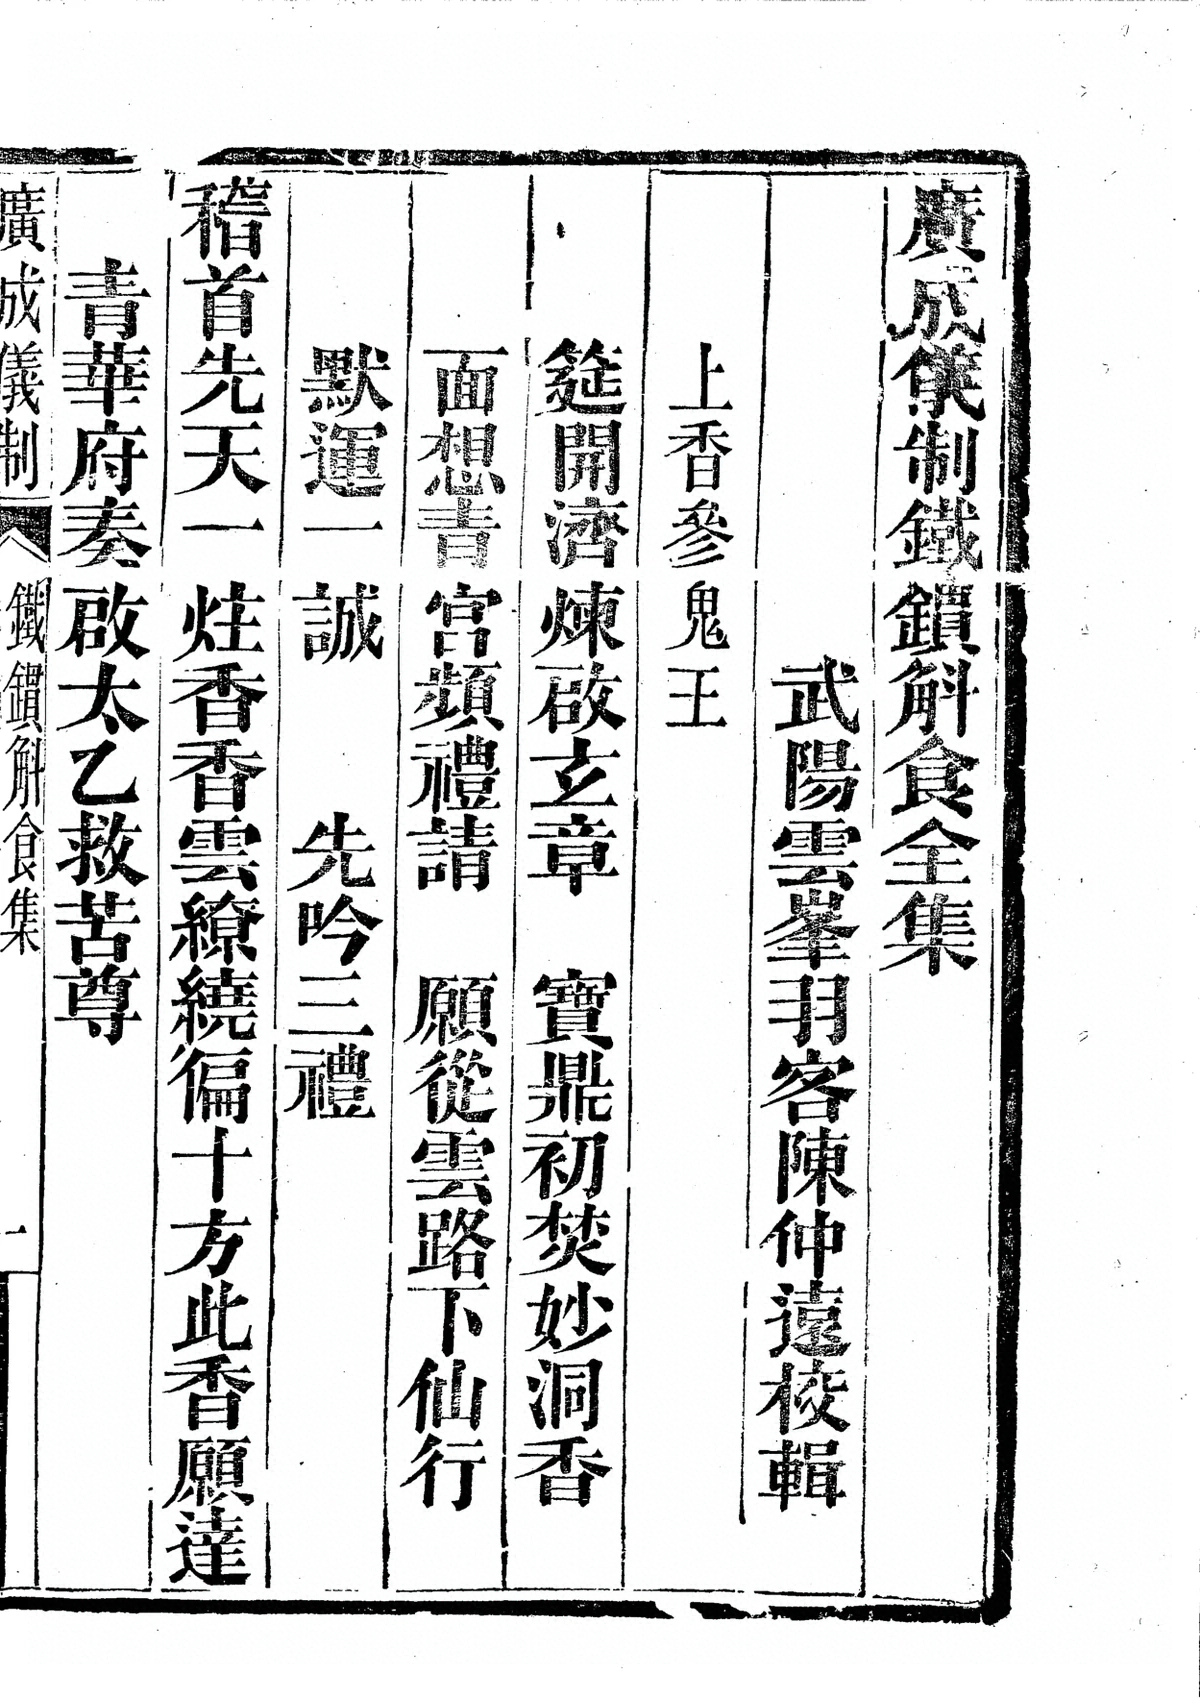 廣成儀制鐵鎖斛食全集
武陽雲峯羽客陳仲遠校輯
上香參鬼王
筵開濟煉啟玄章　寶鼎初焚妙洞香
面想青宮頻禮請　願從雲路下仙行
默運一誠　先吟三禮
稽首先天一炷香香雲繚繞徧十方此香願達
青華府奏啟太乙救苦尊
廣成儀制　鐵鎖斛食集　一